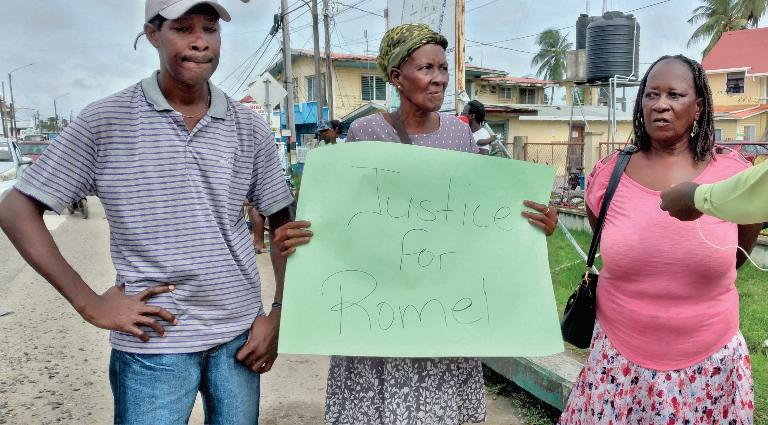 Justice
for
Romel